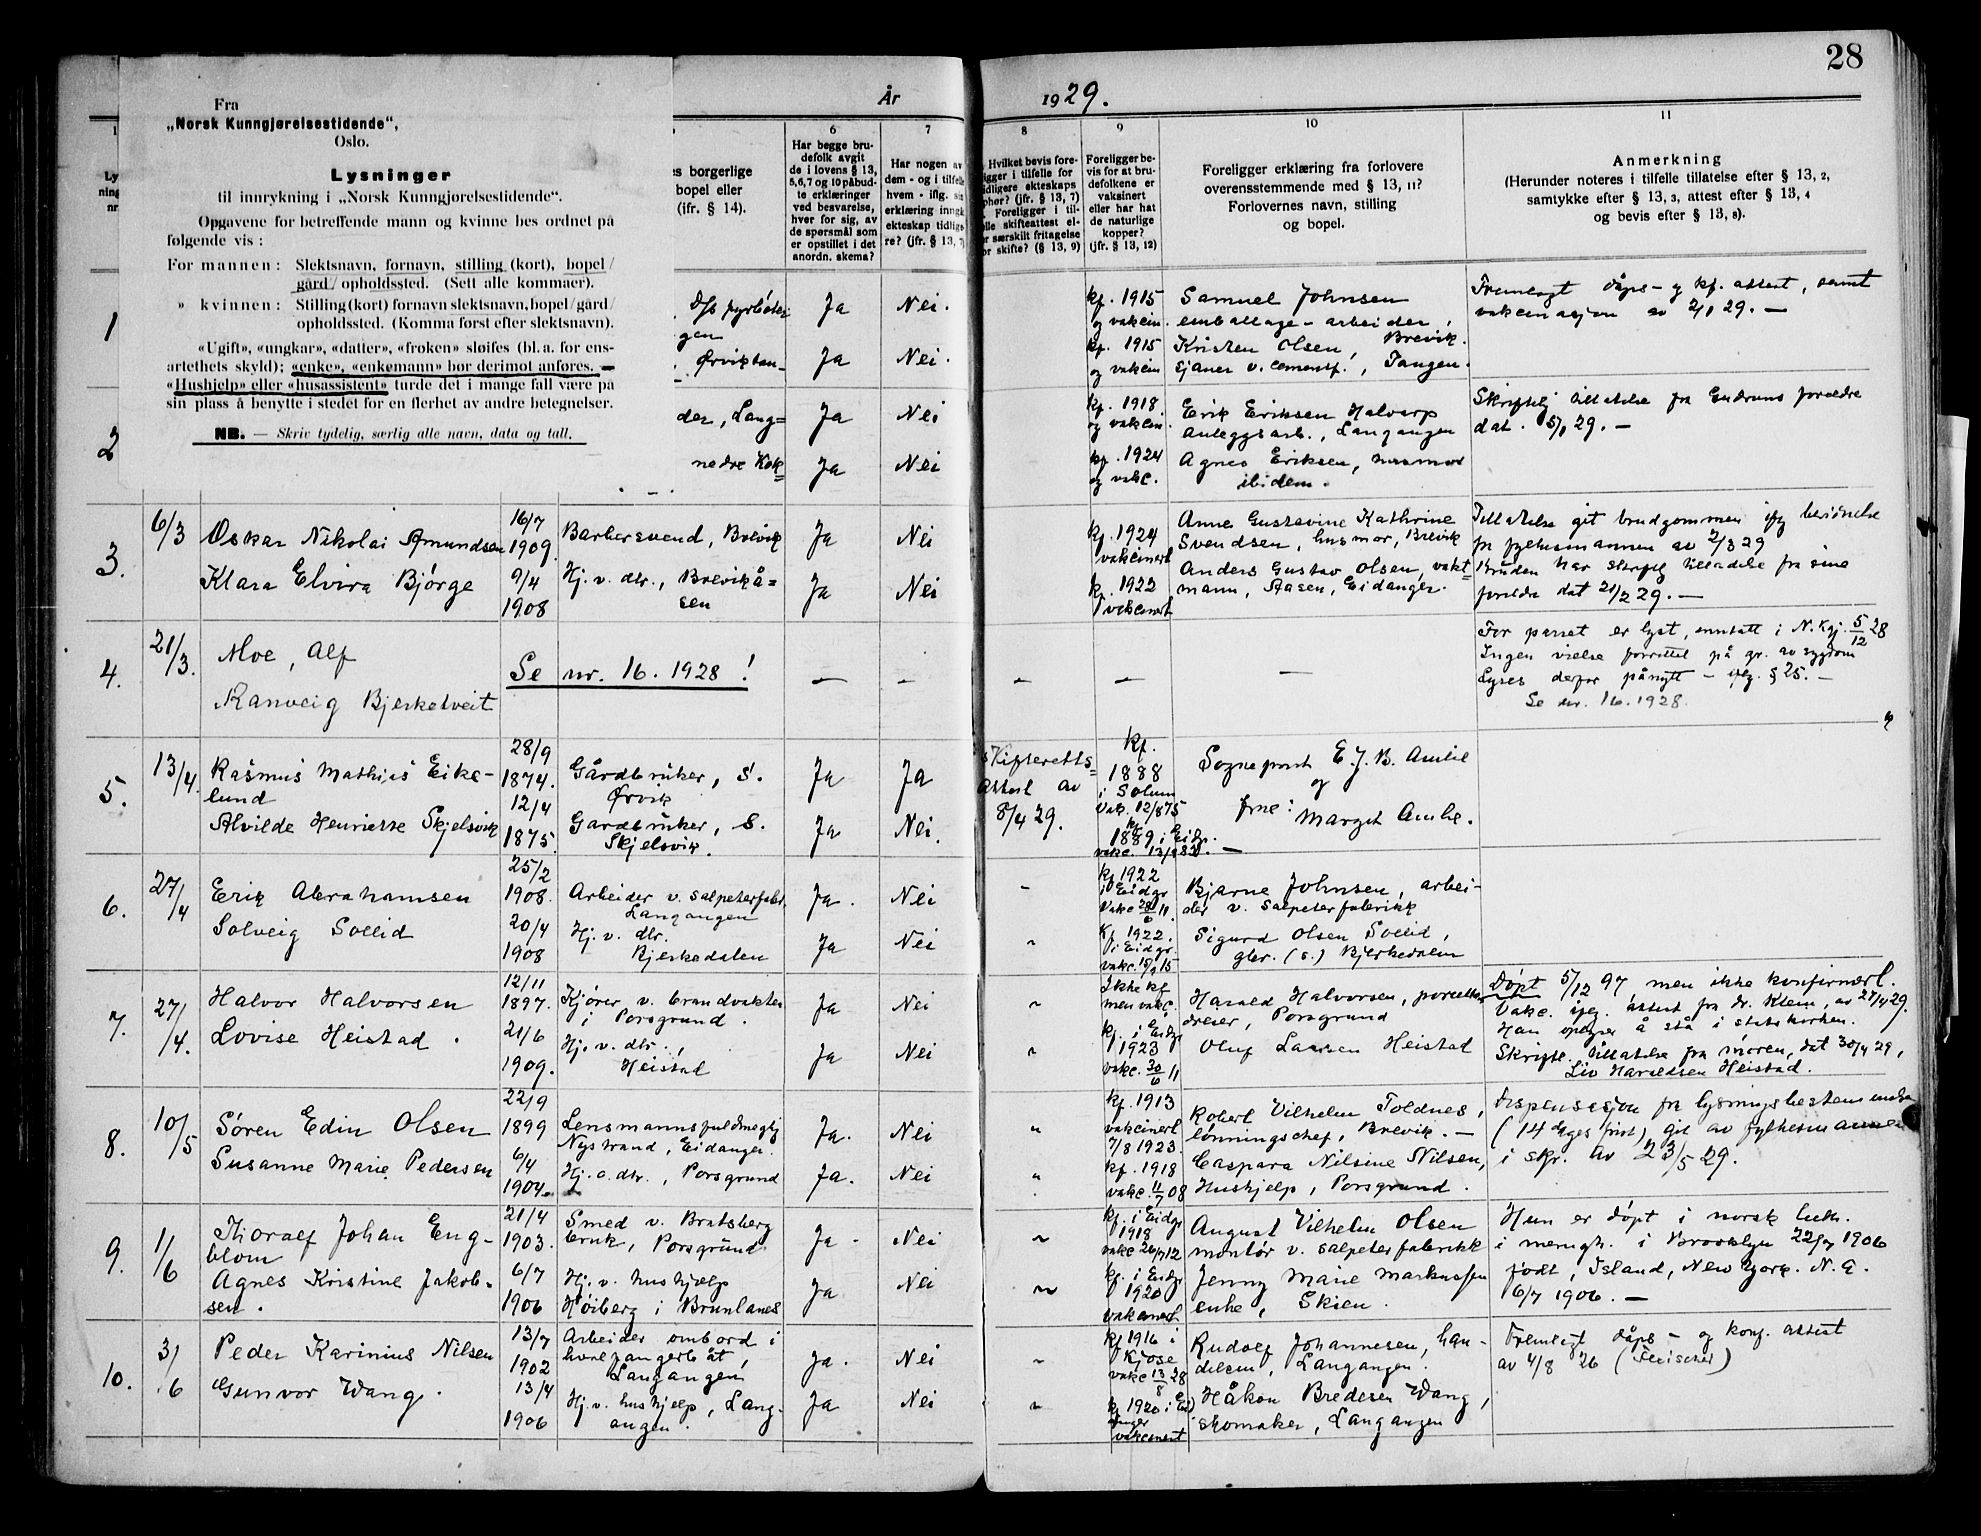 28
År
1929.
Fra
„Norsk Kunngjørelsestidende“,
Oslo.
Lysninger
til innrykning i „Norsk Kunngjørelsestidende“.
Opgavene for betreffende mann og kvinne bes ordnet på
følgende vis :
For mannen: Slektsnavn, fornavn, stilling (kort), bopel/
gård/opholdssted. (Sett alle kommaer).
» kvinnen: Stilling (kort) fornavn slektsnavn, bopel/gård/
opholdssted. (Komma først efter slektsnavn).
«Ugift», «ungkar», «datter», «frøken» sløifes (bl. a. for ens-
artethets skyld); «enke», «enkemann» bør derimot anføres. —
«Hushjelp» eller «husassistent» turde det i mange fall være på
sin plass å benytte i stedet for en flerhet av andre betegnelser.
NB. — Skriv tydelig, særlig alle navn, data og tall.
s borgerlige
bopel eller
(ifr. § 14).
6
Har begge bru-
defolk avgit
de i lovens § 13,
5,6,7 og 10 påbud-
te erklæringer
ved besvarelse,
hver for sig, av
de spørsmål som
er opstillet i det
anordn. skema?
7
Har nogen av
dem - og i tilfelle
hvem - iflg. sin
erklæring inngk
ekteskap tidlig
re? (jfr. § 13, 7
8
Hvilket bevis fore-
ligger i tilfelle for
tidligere ekteskaps
ophør? (jfr. § 13, 7)
Foreligger i til-
felle skifteattest el-
r særskilt fritagelse
or skifte? (§ 13, 9)
9
Foreligger be-
vis for at bru-
defolkene er
vaksinert
eller har hat
de naturlige
kopper?
(jfr. § 13, 12)
10
Foreligger erklæring fra forlovere
overensstemmende med § 13, 11?
Forlovernes navn, stilling
og bopel.
11
Anmerkning
(Herunder noteres i tilfelle tillatelse efter § 13, 2,
samtykke efter § 13, 3, attest efter § 13, 4
og bevis efter § 13, 8).
1
D/s fyrbøter
gen
Ørviktan-
Ja
Nei.
Ja
Nei.
kf. 1915
og vakcin.
kf. 1915
og vakcin
Samuel Johnsen
emballage-arbeider,
Brevik.
Kristen Olsen,
v. cementf., Tangen.
Fremlagt dåps- og kf. attest, samt
vakcinasjon av 2/1 29. —
2
der, Lang=
nedre Kok=
Ja
Nei
Ja
Nei
kf. 1918.
og vakcin.
kf. 1924
og vakc.
Erik Eriksen Halvarp
anleggsarb., Langangen
Agnes Eriksen, husmor
ibidem.
Skriftlig tillatelse fra Gudruns foreldre
dat. 5/1 29. —
3.
6/3
Oskar Nikolai Amundsen
Klara Elvira Bjørge
16/7
1909.
9/4
1908
Barbersvend, Brevik
Hj. v. dtr., Brevikå=
sen
Ja
Nei
Ja
Nei
kf. 1924
vakcinert
kf. 1922
vakcinert
Anne Gustavine Kathrine
Svendsen, husmor, Brevik
Anders Gustav Olsen, vakt=
mann, Aasen, Eidanger.
Tillatelse git brudgommen
fr fylkesmannen av 2/3 29
Bruden har skriftlig tilladelse fra sine
foreldre dat 21/2 29. —
4.
21/3.
Moe, Alf
Ranveig Bjerketveit
Se nr. 16. 1928 !
For parret er lyst, inntatt i N. Kgj. 5/12 28
Ingen vielse forrettet på gr. av sygdom
Lyses derfor pånytt — § 25. —
Se nr. 16. 1928.
5.
13/4.
Rasmus Mathias Eike-
lund
Alvilde Henriette Skjelsvik
28/9
1874.
12/4
1875.
Gårdbruker, S.
Ørvik
Gårdbruker, S.
Skjelsvik.
Ja
Ja
Ja
Nei.
Skifteretts=
attest av
8/4 29.
kf.
1888
i Solum
Vak. 12/8 75
kf.
1889 i Eidgr.
Sogneprest E. J. B. Amlie
og
frue: Margit Amlie.
6.
27/4
Erik Abrahamsen
Solveig Sollid
25/2
1908.
20/4
1908
Arbeider v. salpeterfabr.
Langangen
Hj. v. dtr.
Bjerkedalen
Ja.
Nei
Ja
Nei
kf 1922
i Eidgr
Vakc 28/6 11.
kf. 1922.
i Eidgr.
vakc. 15/9 15
Bjarne Johnsen, arbei-
der v. salpeterfabrikk
Sigurd Olsen Sollid,
gbr. (s.) Bjerkedalen
7.
27/4.
Halvor Halvorsen
Lovise Heistad.
12/11
1897.
21/6
1909.
Kjører v. brandvakten
i Porsgrund.
Hj. v. dtr.,
Heistad
Ja
Nei
Ja
Nei
Ikke kf
men vakc.
kf. i Eidgr
1923
vakc. 30/6 11
Harald Halvorsen,
dreier, Porsgrund
Oluf Larsen Heistad
Døpt 5/12 97 men ikke konfirmert.
Vakc. attest fra dr. Klem, av 27/4 29.
Han opgir å stå i statskirken.
Skriftl. tillatelse fra moren, dat 30/4 29,
Liv Haraldsen Heistad.
8.
10/5
Søren Edin Olsen
Susanne Marie Pedersen
22/9
1899
6/4
1904.
Lensmannsfuldmegtig
Nystrand, Eidanger.
Hj. v. dtr., Porsgrund
Ja.
Nei
Ja.
Nei
kf. 1913
vakcinert
7/8 1923.
kf. 1918
vakc. 11/7 08
Robert Vilhelm Toldnes,
lønningschef, Brevik. —
Caspara Nilsine Nilsen,
Hushjelp, Porsgrund.
Dispensasjon fra lysningsbestemmelsen
(14 dages frist) git av fylkesmannen
i skr. av 23/5 29.
9.
1/6
Thoralf Johan Eng-
blom
Agnes Kristine Jakob-
sen.
21/4
1903.
6/7
1906
Smed v. Bratsberg
bruk, Porsgrund.
Hj. v. hushjelp
Høiberg i Brunlanes
Ja
Nei
Ja
Nei
kf. i Eidgr
1918
vakc 26/7 12
kf. i Eidgr
1920
vakcinert
August Vilhelm Olsen
montør v. salpeterfabrikk
Jenny Marie Markussen
enke, Skien.
Hun er døpt i norsk luth.
i menigh. i Brooklyn 22/7 1906
født, Island, New York. N. A.
6/7 1906. —
10.
3/6
Peder Karinius Nilsen
Gunvor Wang.
13/7
1902
13/4
1906
Arbeider ombord i
hvalfangerbåt,
Langangen
Hj. v. hushjelp, Lang-
angen.
Ja.
Nei
Ja
Nei
kf 1916 i
Kjose
vakc 13/8 28
kf 1920 i Eid
anger
vakcinert
Rudolf Johannesen, han-
delsm, Langangen.
Håkon Bredesen Wang,
skomaker, Langangen
Fremlagt dåps- og konf. attest
av 4/8 26 (Fleischer)